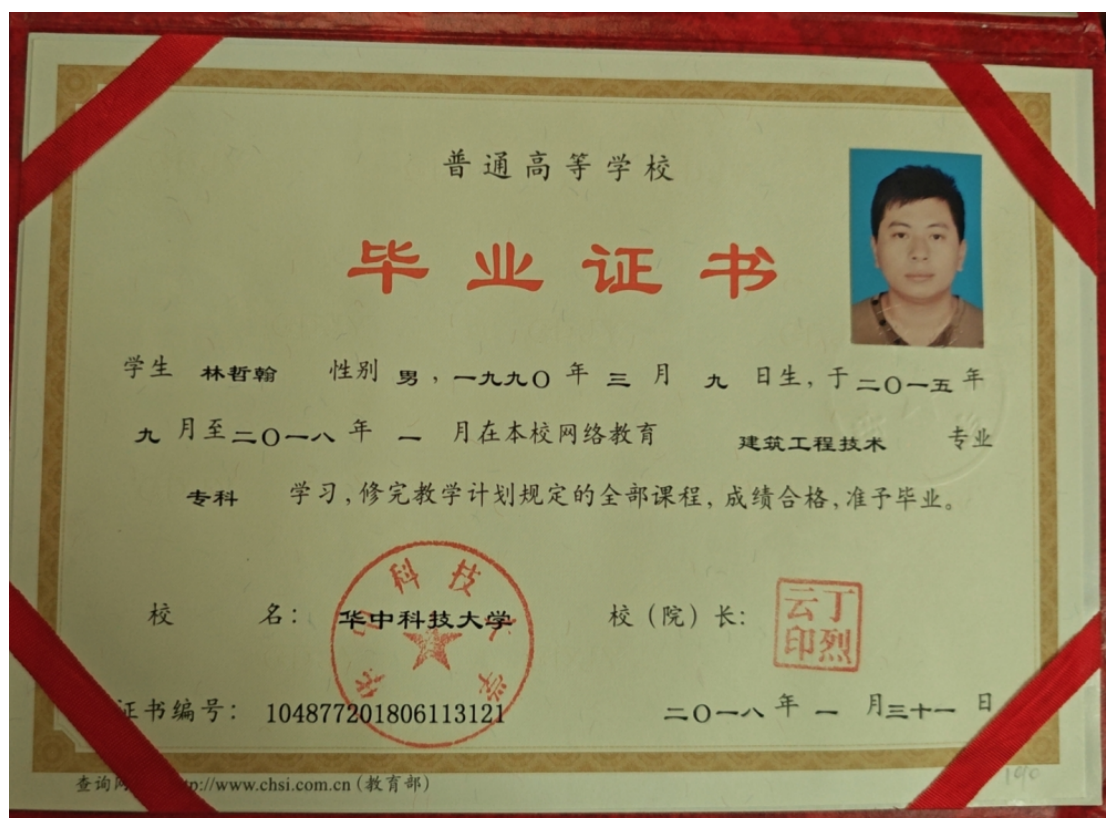 普通高等学校
毕业证书
学生 林哲翰 性别 男，一九九〇 年 三 月 九 日生，于二〇一五年
九 月至二〇一八 年 一 月在本校网络教育 建筑工程技术 专业
专科 学习，修完教学计划规定的全部课程，成绩合格，准予毕业。
校 名： 华中科技大学
校（院）长：
丁烈云印
华中科技大学
证书编号： 104877201806113121
二〇一八 年 一 月三十一 日
查询网 p://www.chsi.com.cn（教育部）